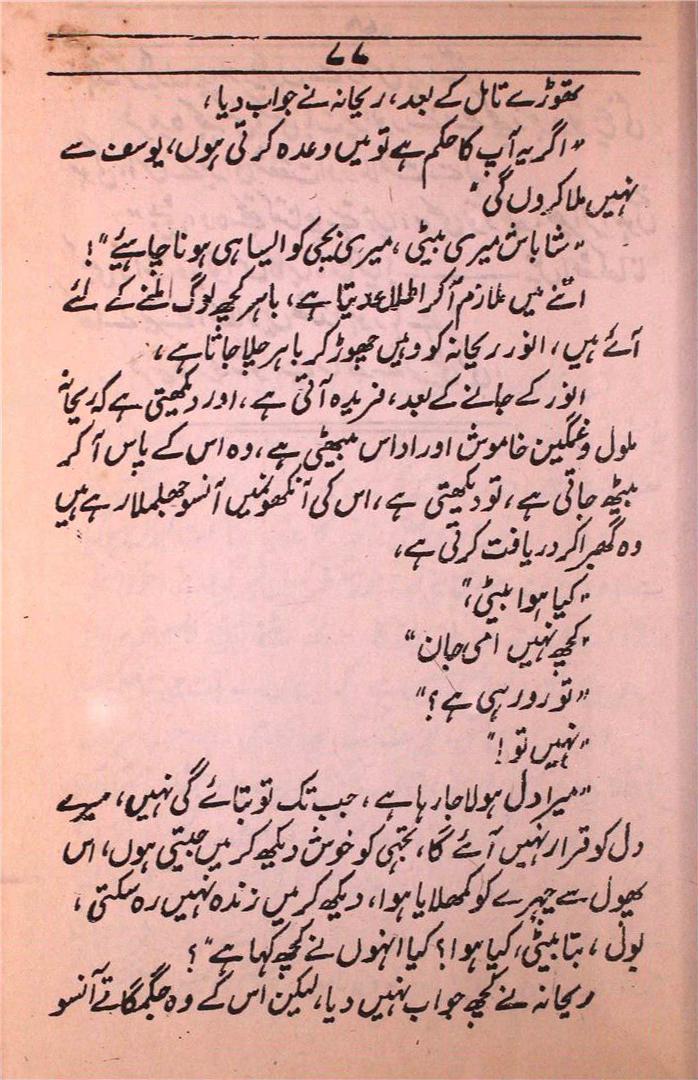 ۷۷
تھوڑے تامل کے بعد، ریحانہ نے جواب دیا،
"اگر یہ آپ کا حکم ہے تو میں وعدہ کرتی ہوں، یوسف سے
نہیں ملا کروں گی"
"شاباش میری بیٹی، میری بچی کو ایسا ہی ہونا چاہیئے"!
اتنے میں ملازم آ کر اطلاع دیتا ہے، باہر کچھ لوگ ملنے کے لئے
آئے ہیں، انور ریحانہ کو وہیں چھوڑ کر باہر چلا جاتا ہے،
انور کے جانے کے بعد، فریدہ آتی ہے، اور دیکھتی ہے کہ ریحانہ
ملول و غمگین خاموش اور اداس بیٹھی ہے، وہ اس کے پاس آ کر
بیٹھ جاتی ہے، تو دیکھتی ہے، اس کی آنکھوں میں آنسو جھلملا رہے ہیں
وہ گھبرا کر دریافت کرتی ہے،
"کیا ہوا بیٹی،"
"کچھ نہیں امی جان"
"تو رو رہی ہے؟"
"نہیں تو!"
"میرا دل ہولا جا رہا ہے، جب تک تو بتائے گی نہیں، میرے
دل کو قرار نہیں آئے گا، تجھی کو خوش دیکھ کر میں جیتی ہوں، اس
پھول سے چہرے کو کمھلایا ہوا، دیکھ کر میں زندہ نہیں رہ سکتی،
بول، بتا بیٹی، کیا ہوا؟ کیا انہوں نے کچھ کہا ہے"؟
ریحانہ نے کچھ جواب نہیں دیا، لیکن اس کے وہ جگمگاتے آنسو